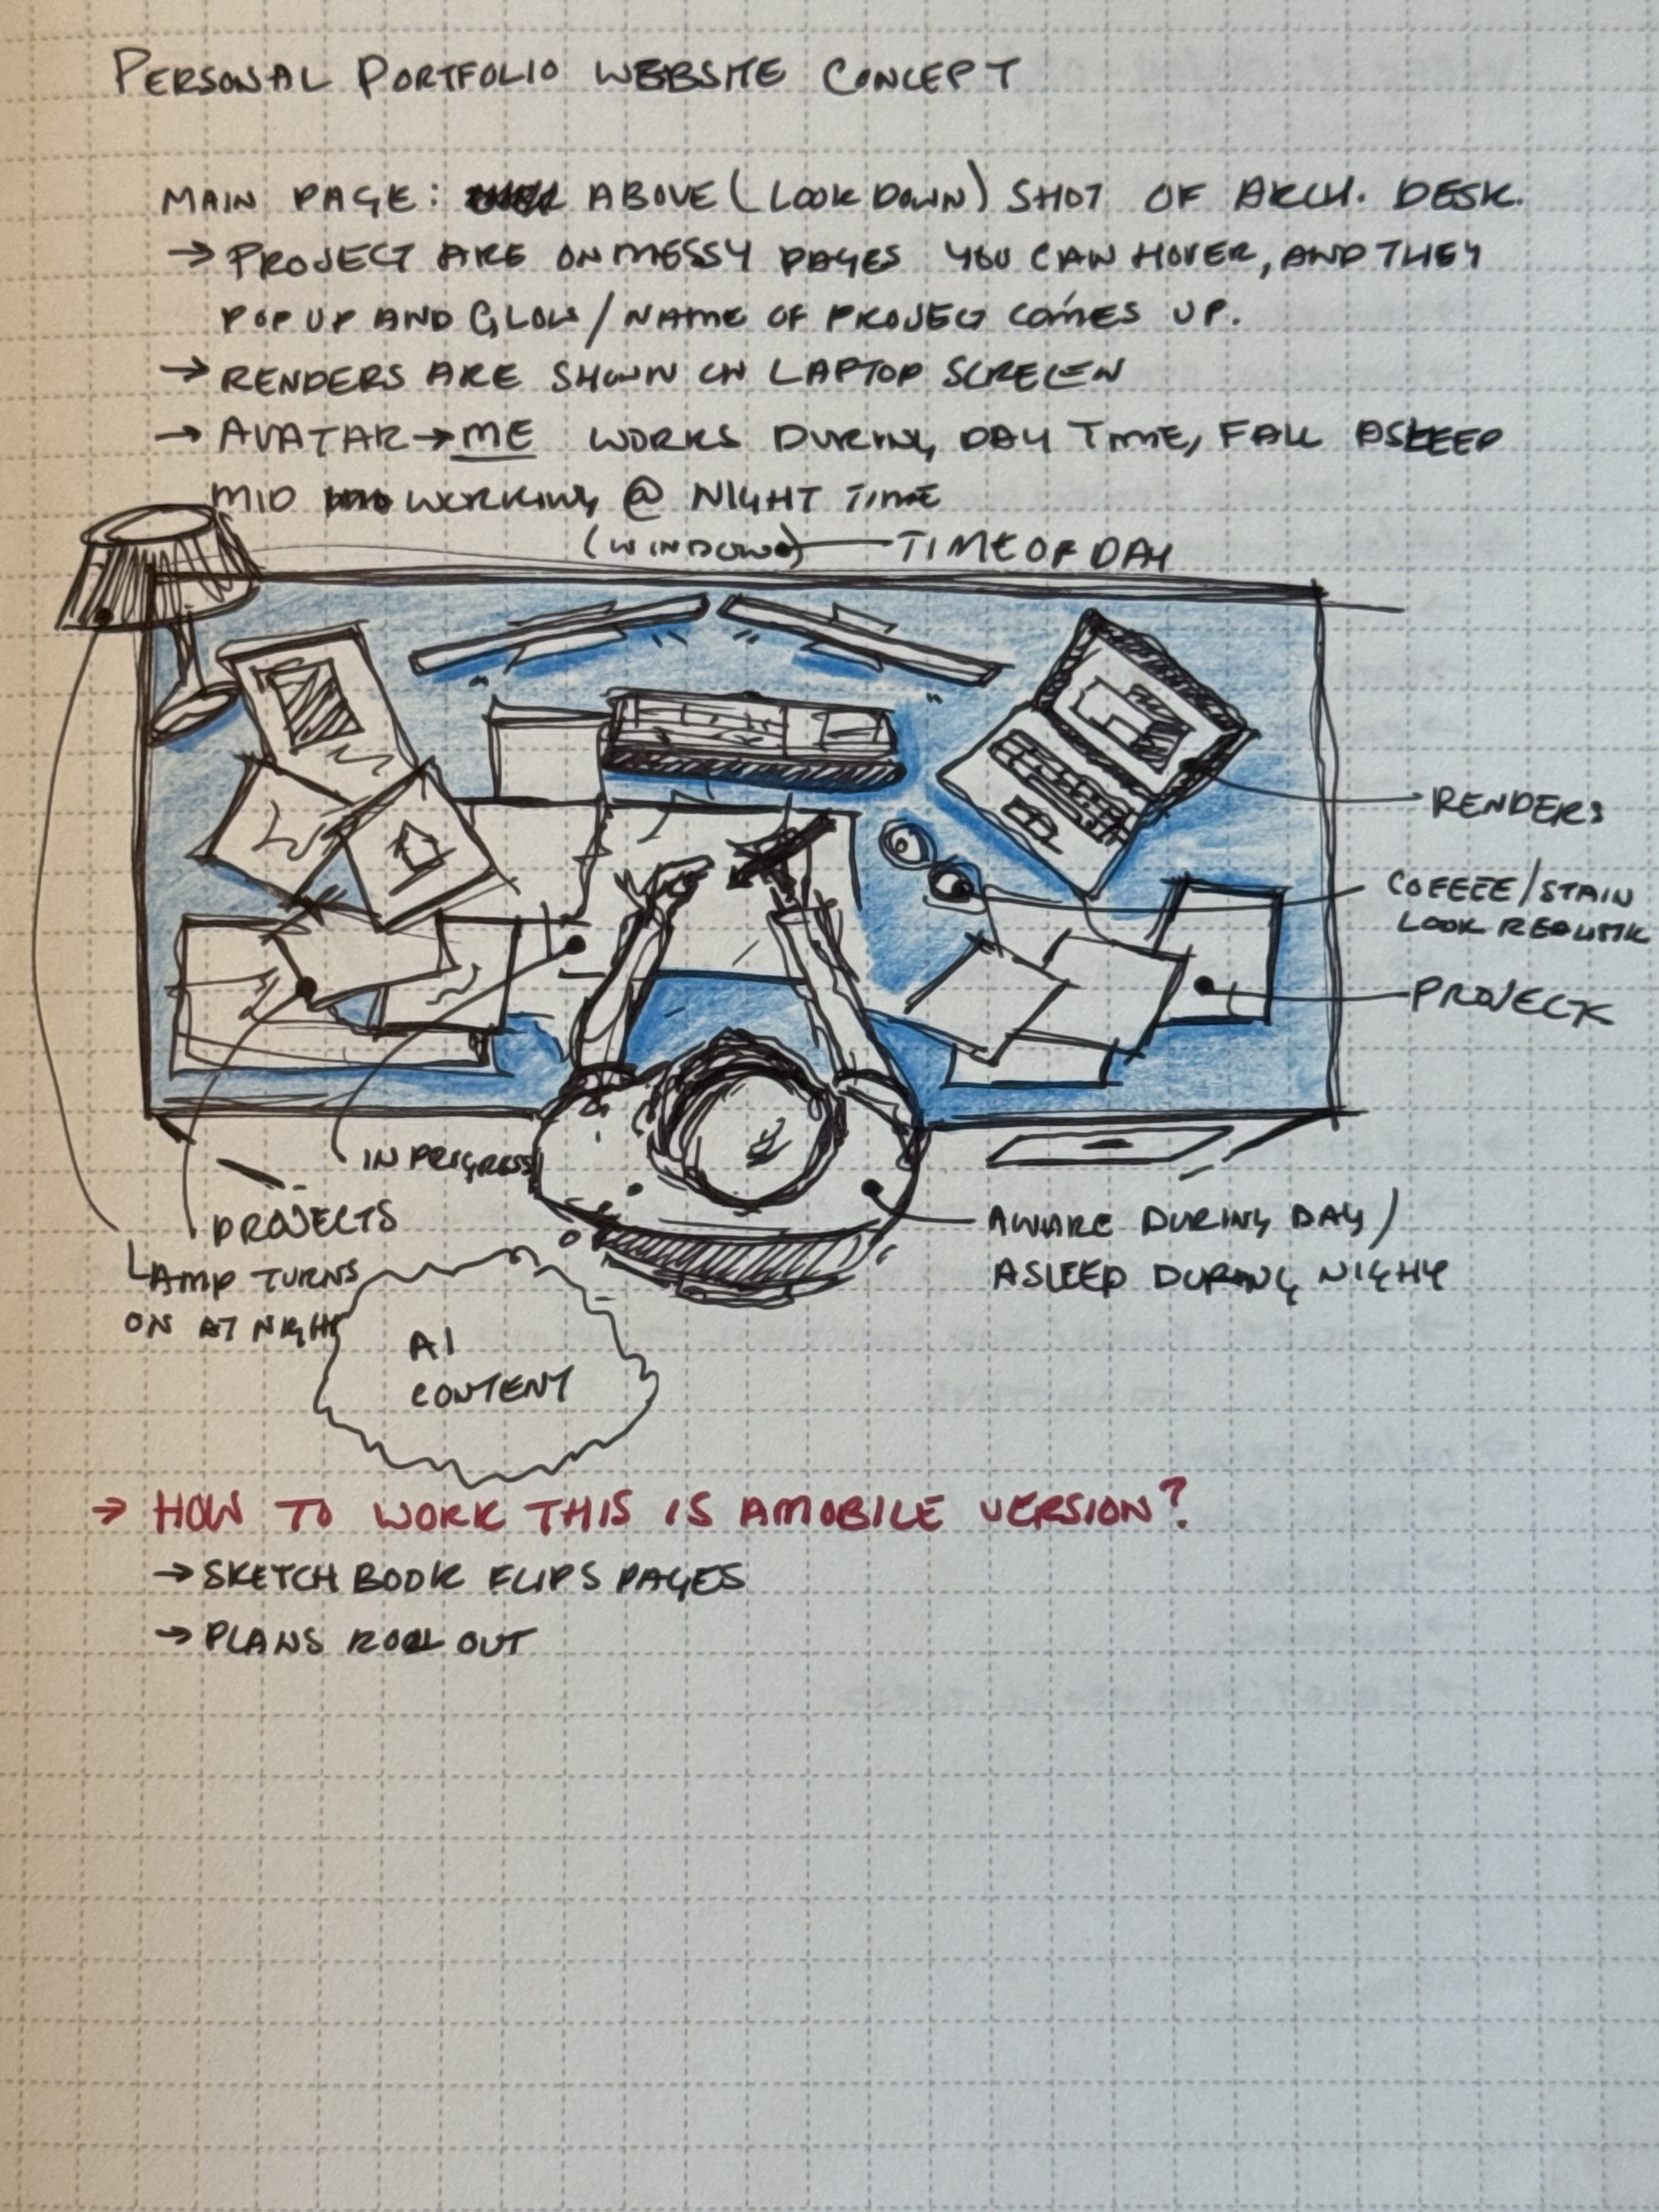 PERSONAL PORTFOLIO WEBSITE CONCEPT
MAIN PAGE: ABOVE (LOOK DOWN) SHOT OF ARCH. DESK.
→ PROJECT ARE ON MESSY PAGES YOU CAN HOVER, AND THEY
POP UP AND GLOW / NAME OF PROJECT COMES UP.
→ RENDERS ARE SHOWN ON LAPTOP SCREEN
→ AVATAR → ME WORKS DURING DAY TIME, FALL ASLEEP
MID WORKING @ NIGHT TIME
(WINDOW) — TIME OF DAY
RENDERS
COFFEE/STAIN
LOOK REALISTIC
PROJECT
IN PROGRESS
PROJECTS
LAMP TURNS
ON AT NIGHT
AWARE DURING DAY /
ASLEEP DURING NIGHT
AI
CONTENT
→ HOW TO WORK THIS IS A MOBILE VERSION?
→ SKETCH BOOK FLIPS PAGES
→ PLANS ROLL OUT